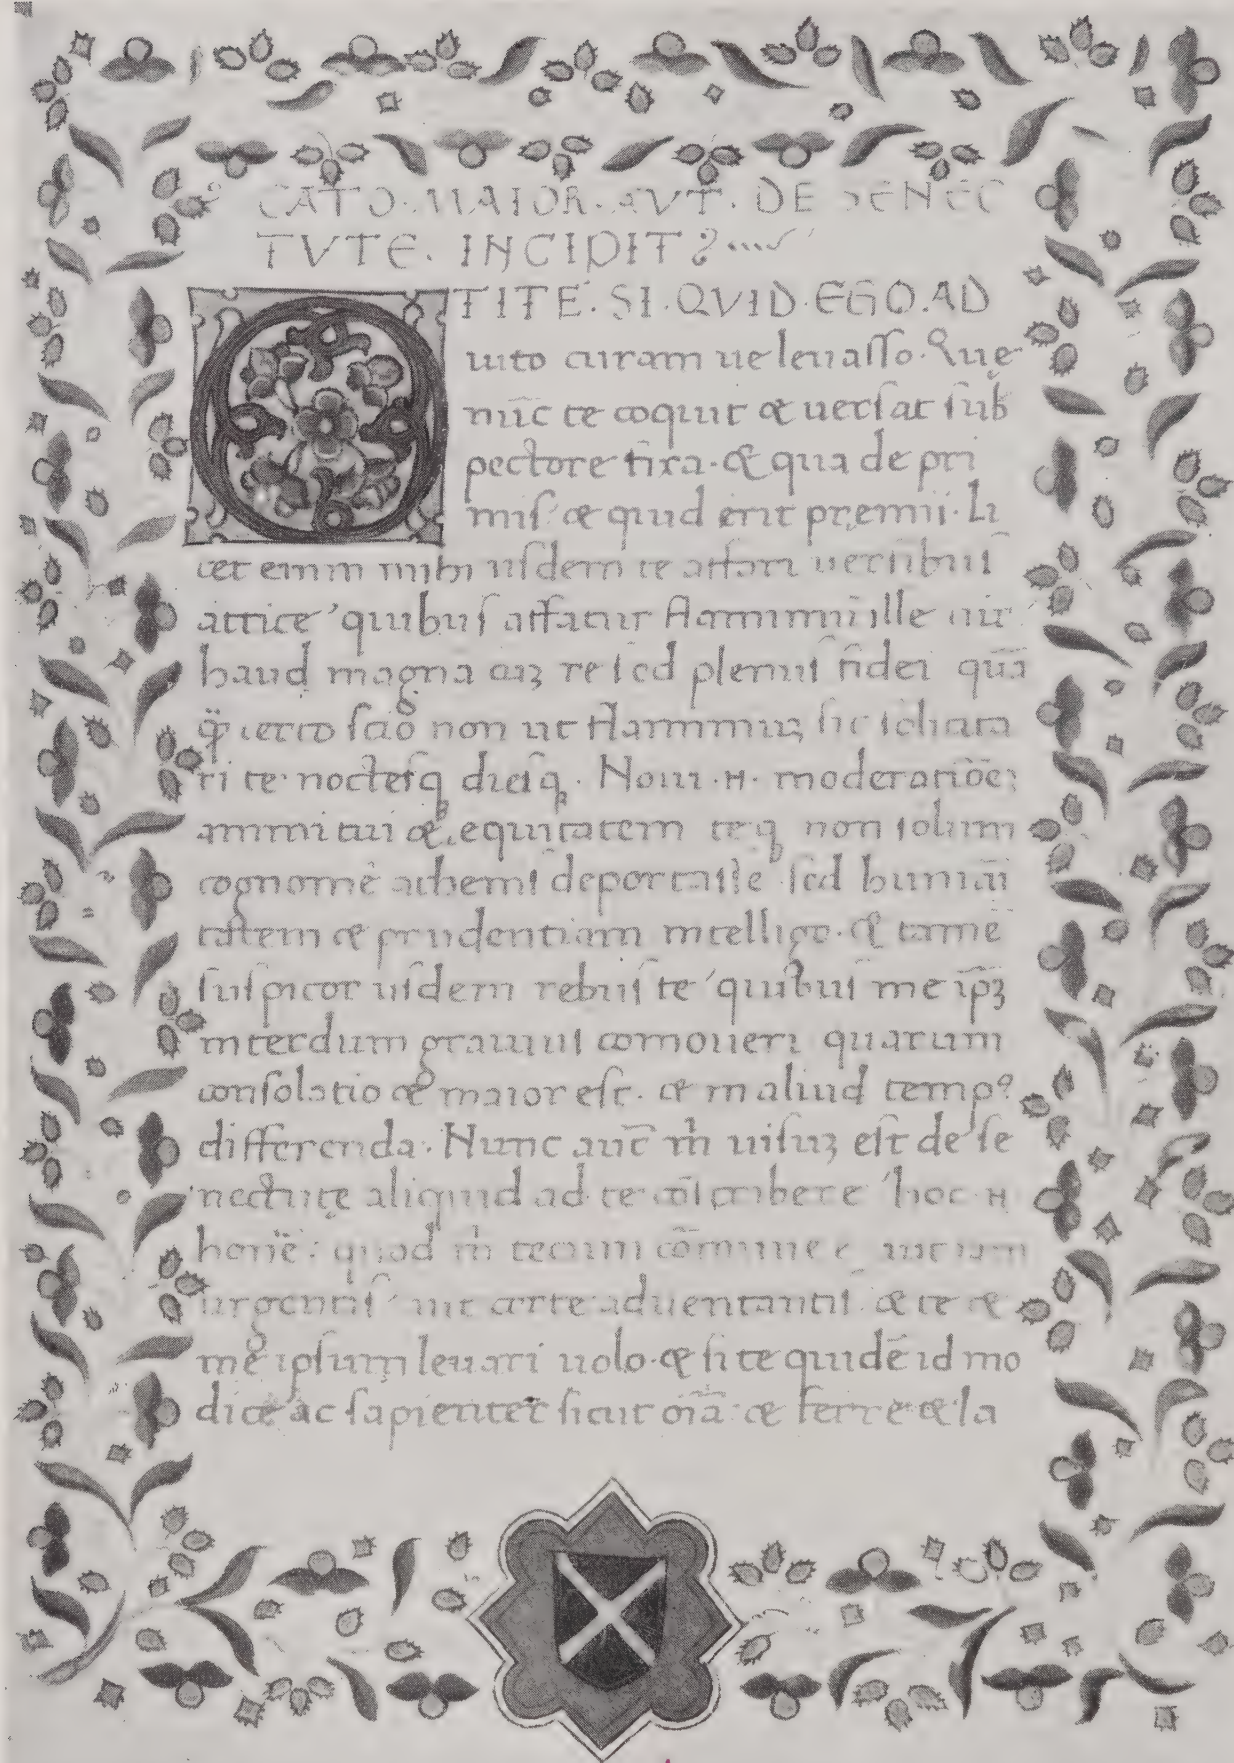 CATO·MAIOR·AVT·DE SENEC
TVTE·INCIPIT
O TITE·SI·QVID·EGO·AD
iuto curam ue leuasso·Que
nūc te coquit & uersat sub
pectore fixa·& qua de pri
mis & quid erit premii·Li
cet enim mihi iisdem te affari uersibus
attice quibus affatur flamminū ille uir
haud magna cuꝫ re sed plenus fidei quā
certo scio non ut flamminuꝫ sic solicita
ri te noctesq diesq· Noui·n·moderatiōeꝫ
animi tui & equitatem teq non solum
cognomē athenis deportasse sed humāi
tatem & prudentiam intelligo·& tamē
suspicor iisdem rebus te quibus me ip̄ꝫ
interdum grauius comoueri quarum
consolatio & maior est·& in aliud temp⁹
differenda·Nunc aut̄ m̄ uisuꝫ est de se
nectute aliquid ad te cōscribere hoc n
quod m̄ tecum cōmune ē aut iam
urgentis aut certe aduentantis & te &
me ipsum leuari uolo·& si te quidē id mo
dice ac sapienter sicut oīa & ferre & la